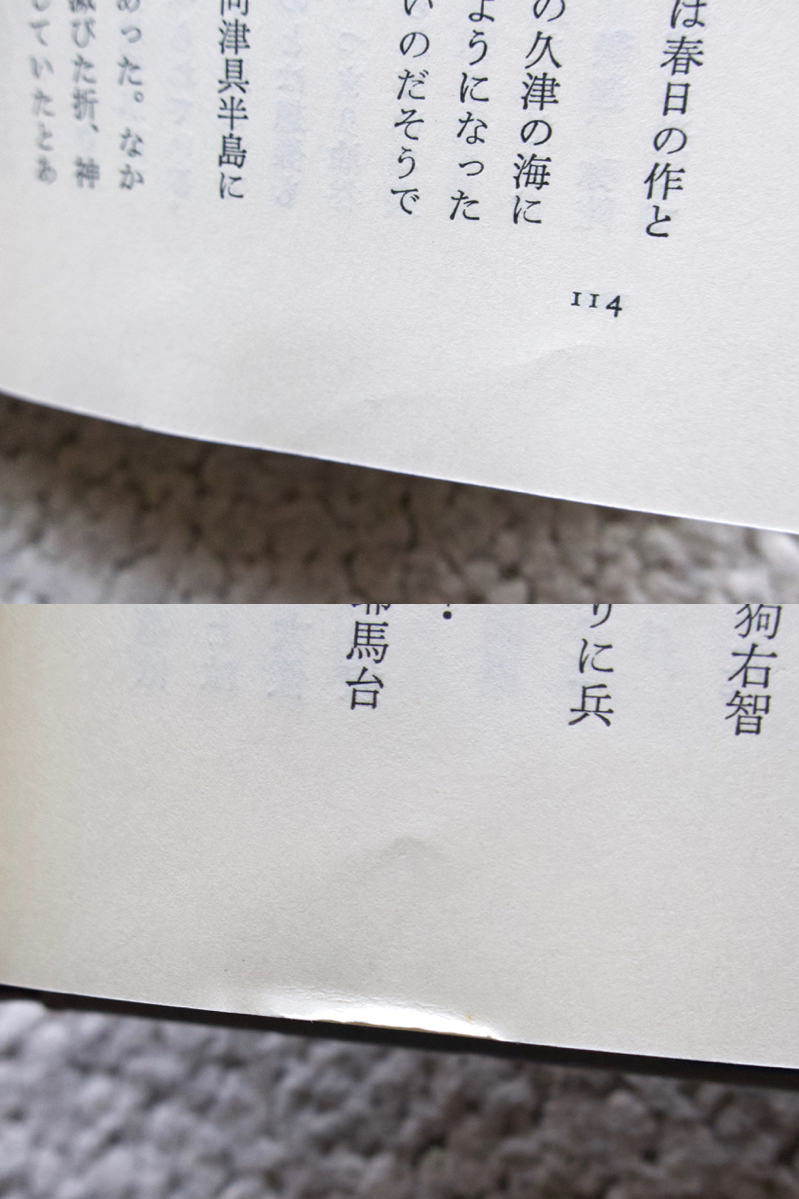 は春日の作と
の久津の海に
ようになった
いのだそうで
向津具半島に
あった。なか
滅びた折、神
していたとあ
114
狗右智
りに兵
耶馬台